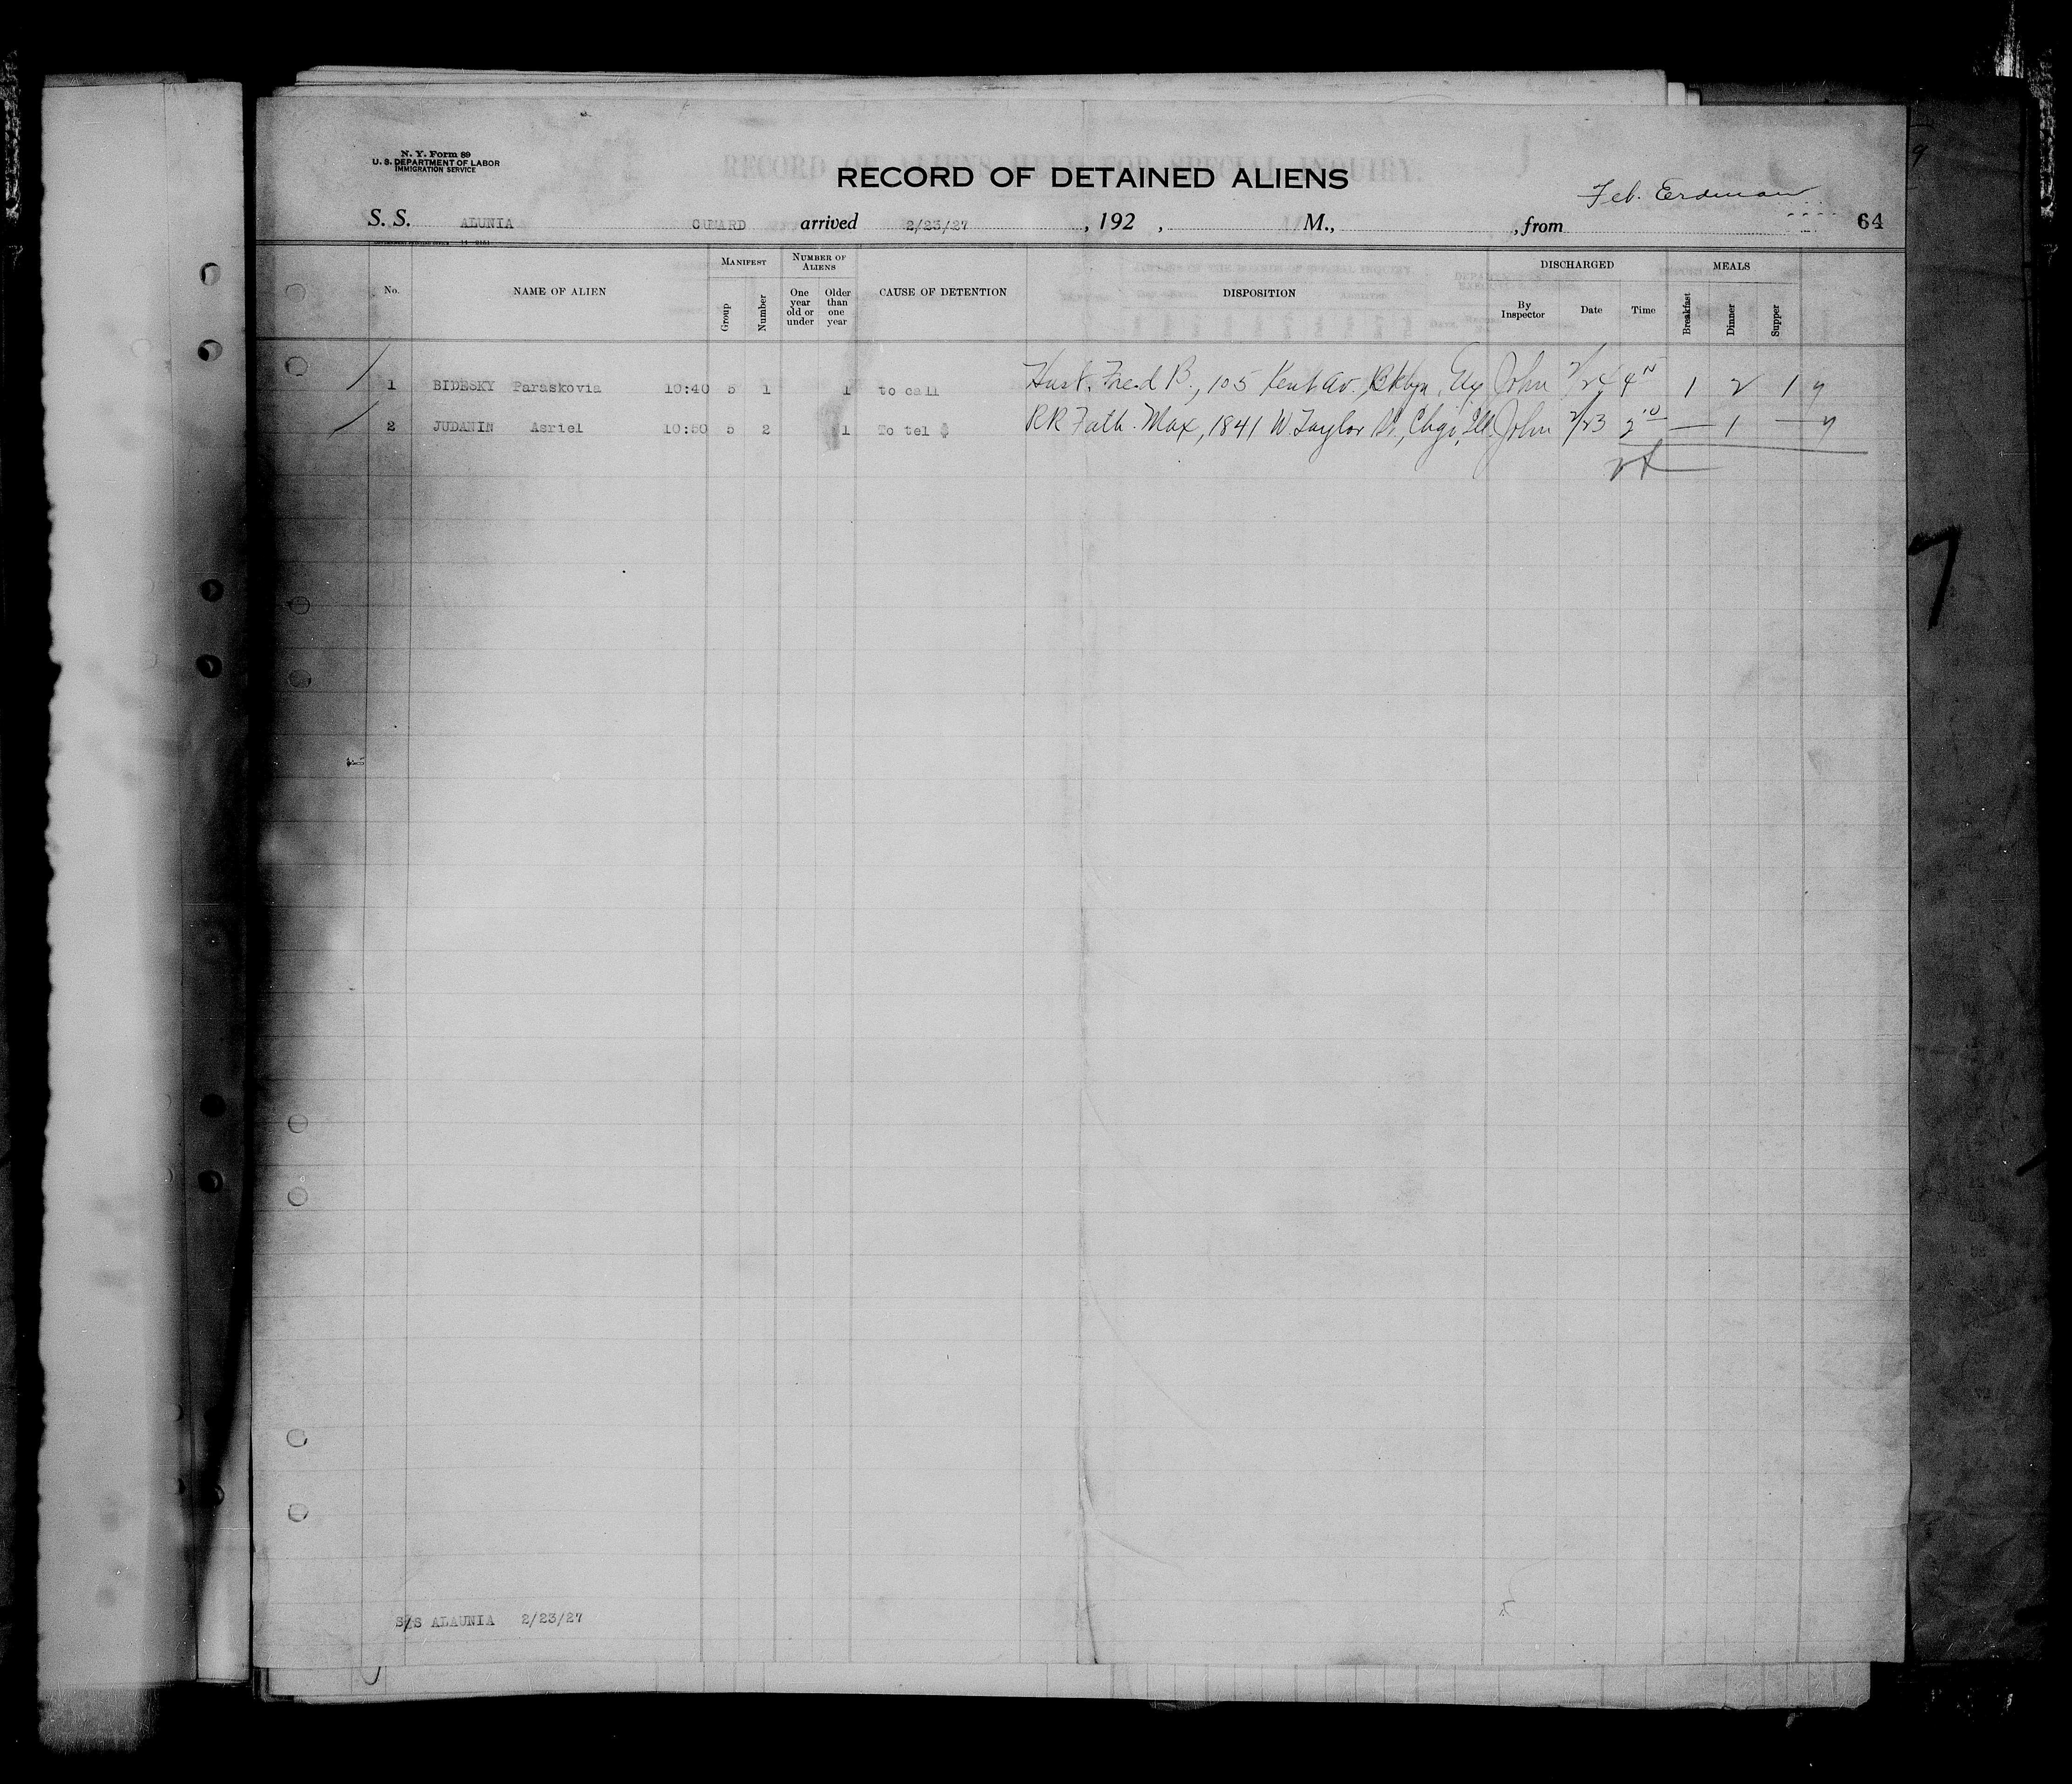 N. Y. Form 89
U. S. DEPARTMENT OF LABOR
IMMIGRATION SERVICE
RECORD OF ALIENS HELD FOR SPECIAL INQUIRY.
RECORD OF DETAINED ALIENS
Feb. Erdman
S. S. ALUNIA CUNARD arrived 2/23/27, 192 , M., , from 64
No. NAME OF ALIEN MANIFEST Group Number NUMBER OF ALIENS One year old or under Older than one year CAUSE OF DETENTION DISPOSITION DISCHARGED By Inspector Date Time MEALS Breakfast Dinner Supper
1 BIDESKY Paraskovia 10:40 5 1 1 to call Husb. Fred B., 105 Kent Av. Bklyn, John 2/24 4 1 2 1 y
2 JUDANIN Asriel 10:50 5 2 1 To tel $ RR Fath. Max, 1841 W. Taylor St., Chgo, Ill. John 2/23 2 10 — 1 — y
S/S ALAUNIA 2/23/27